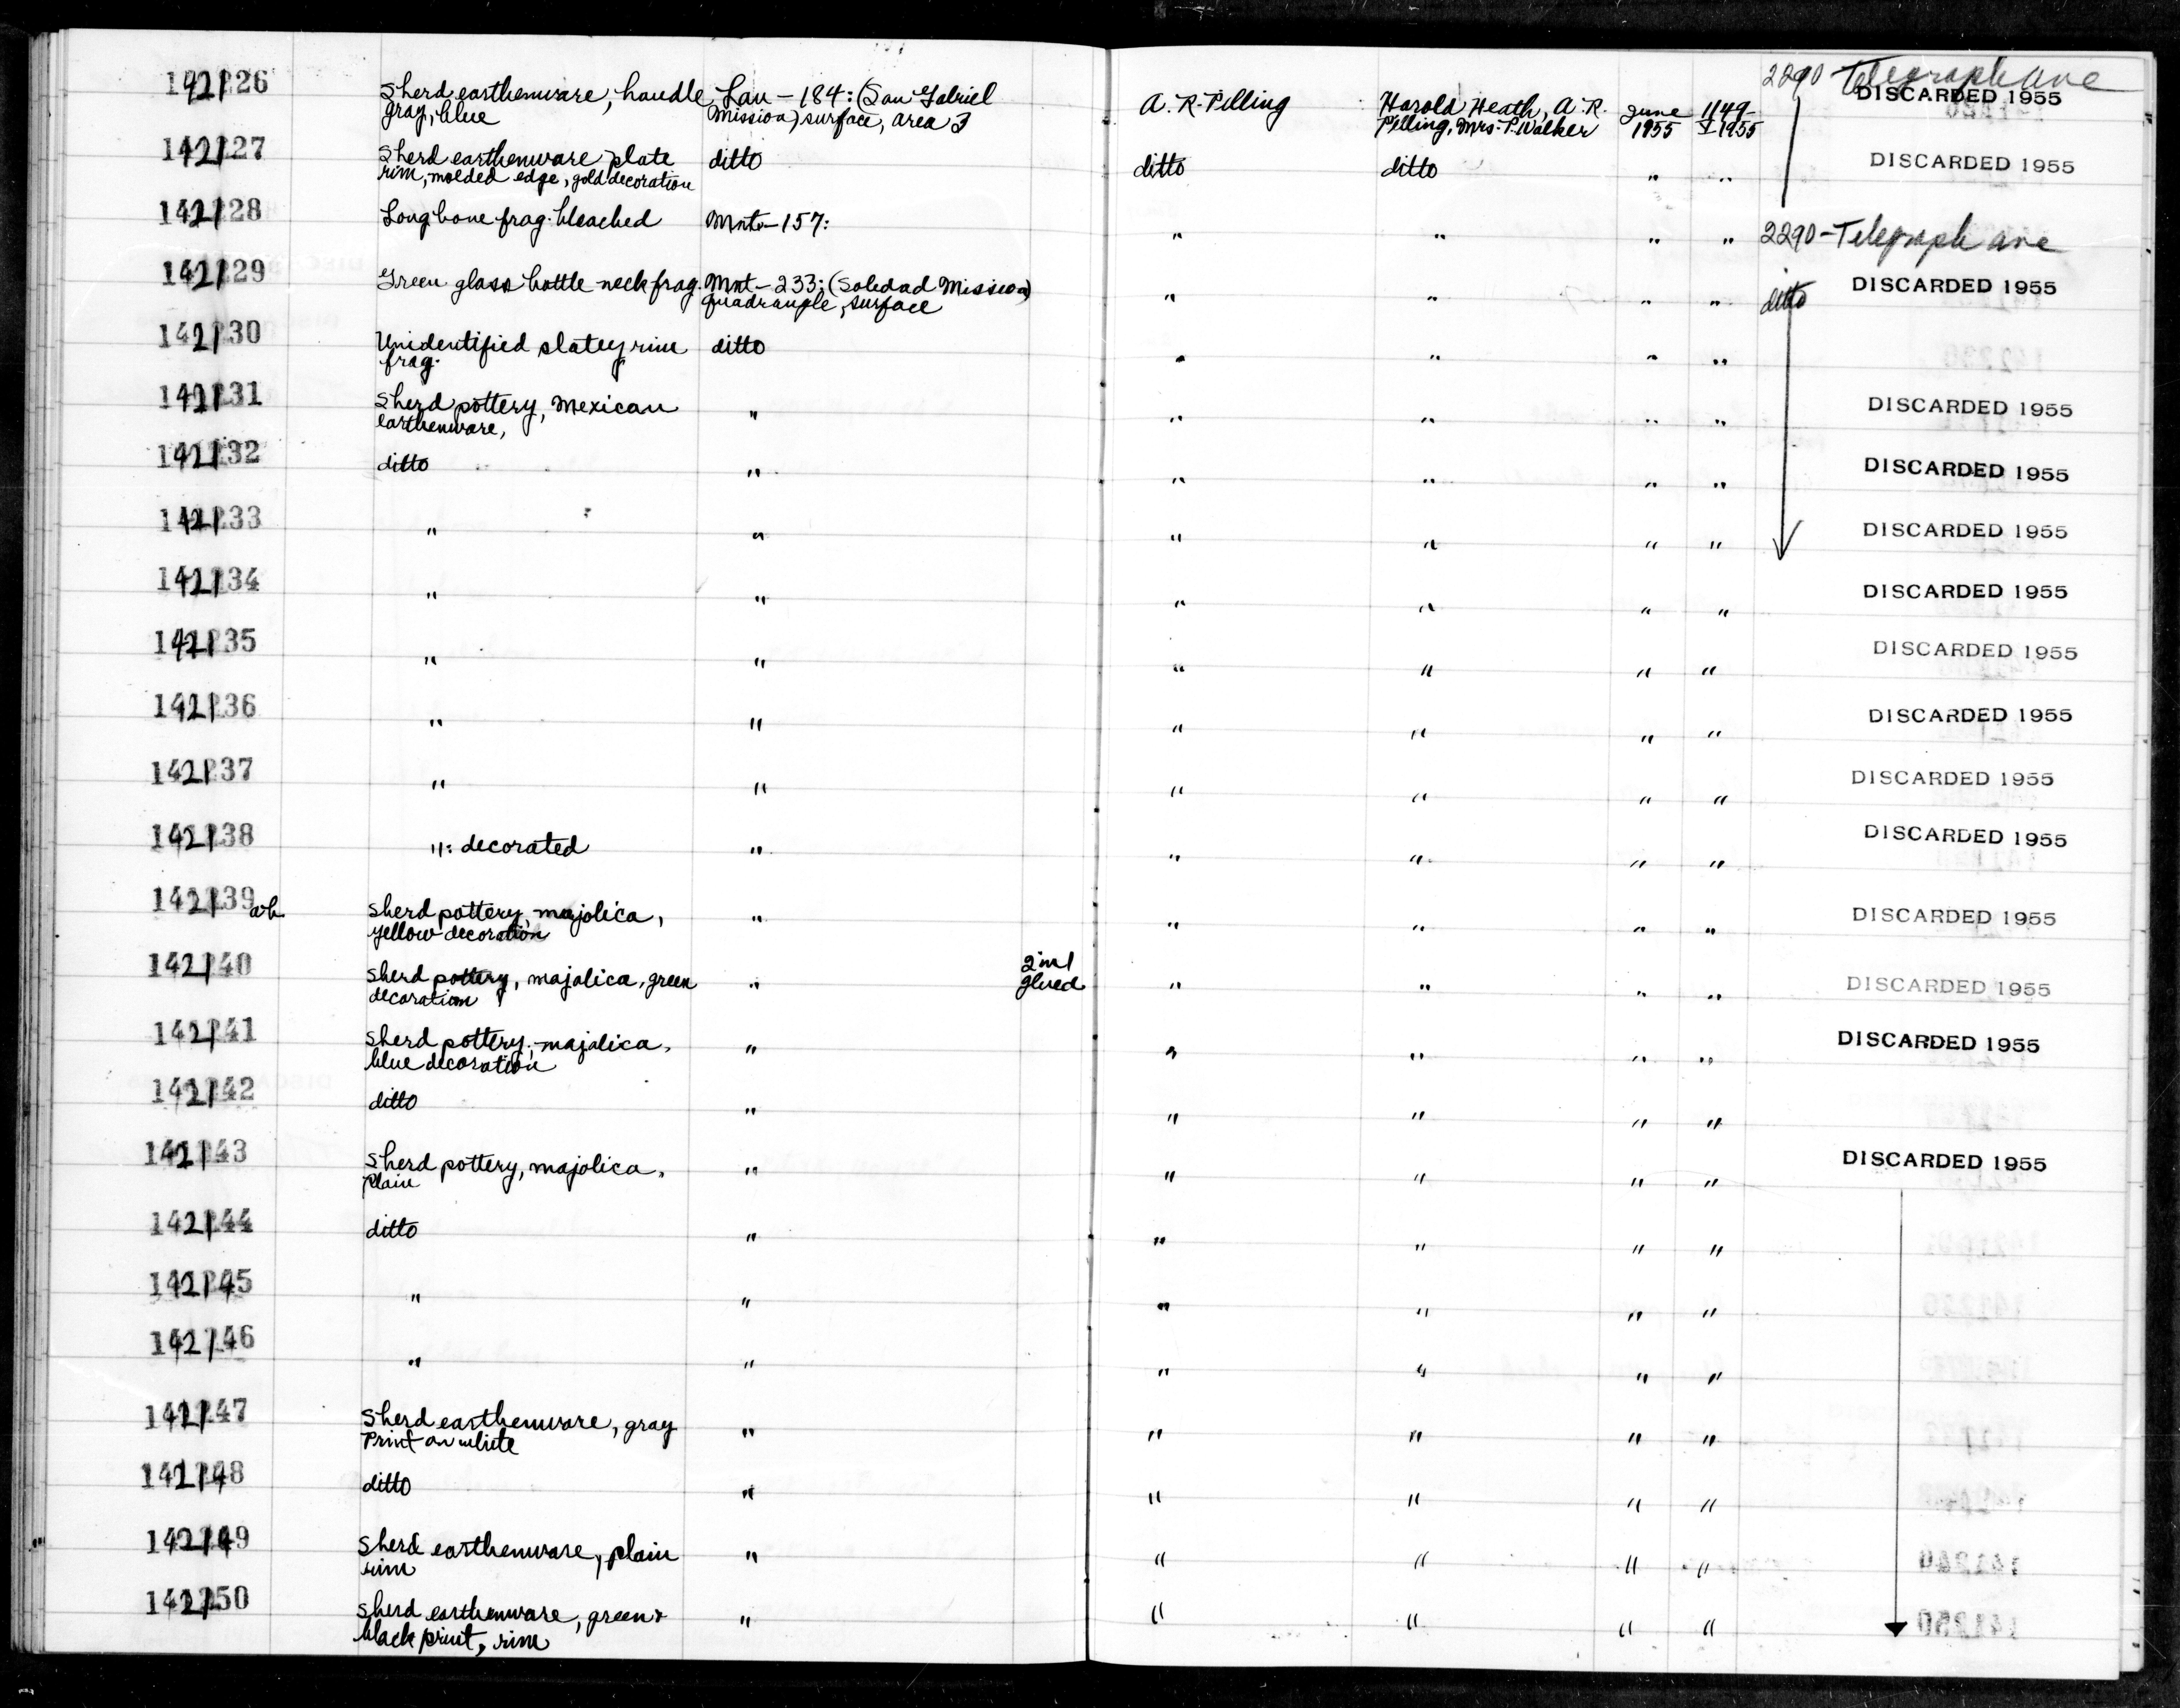 142126 Sherd earthenware, handle, Lan-184: (San Gabriel A. R. Pilling Harold Heath, A. R. June 1149- 2290 Telegraph Ave
gray, blue Mission) surface, area 3 Pilling, Mrs. P. Walker 1955 I-1955 DISCARDED 1955
142127 Sherd earthenware plate ditto ditto ditto " " DISCARDED 1955
rim, molded edge, gold decoration
142128 Long bone frag. bleached Mnt-157: " " " " 2290-Telegraph ave
142129 Green glass bottle neck frag. Mnt-233: (Soledad Mission) " " " " ditto DISCARDED 1955
quadrangle, surface
142130 Unidentified slatey rim ditto " " " "
frag.
142131 Sherd pottery, Mexican " " " " " DISCARDED 1955
earthenware,
142132 ditto " " " " " DISCARDED 1955
142133 " " " " " " DISCARDED 1955
142134 " " " " " " DISCARDED 1955
142135 " " " " " " DISCARDED 1955
142136 " " " " " " DISCARDED 1955
142137 " " " " " " DISCARDED 1955
142138 ": decorated " " " " " DISCARDED 1955
142139 ab Sherd pottery, majolica, " " " " " DISCARDED 1955
yellow decoration
142140 Sherd pottery, majolica, green " 2 in 1 " " " " DISCARDED 1955
decoration glued
142141 Sherd pottery, majolica, " " " " " DISCARDED 1955
blue decoration
142142 ditto " " " " "
142143 Sherd pottery, majolica, " " " " " DISCARDED 1955
plain
142144 ditto " " " " "
142145 " " " " " "
142146 " " " " " "
142147 Sherd earthenware, gray " " " " "
Print on white
142148 ditto " " " " "
142149 Sherd earthenware, plain " " " " "
rim
142150 Sherd earthenware, green & " " " " "
black print, rim